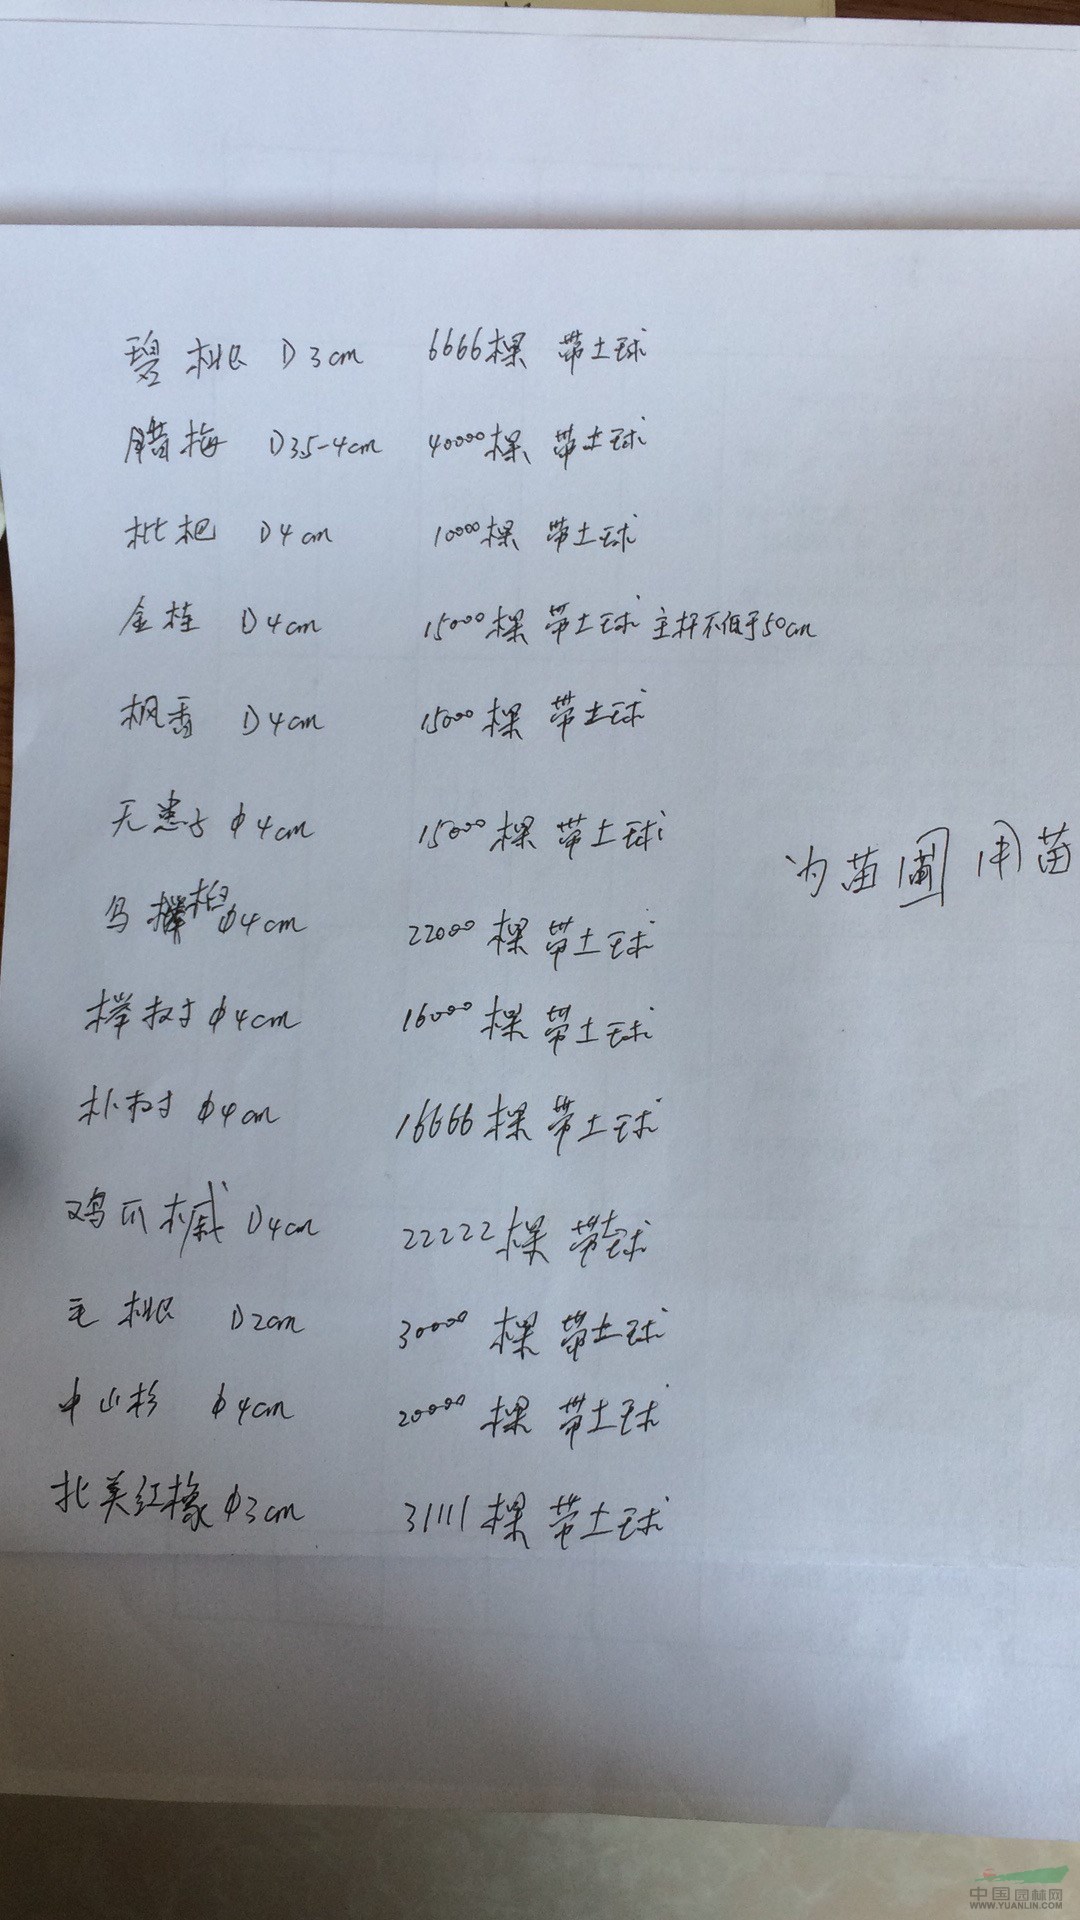 碧桃 D3cm 6666棵 带土球
腊梅 D3.5-4cm 40000棵 带土球
枇杷 D4cm 10000棵 带土球
金桂 D4cm 15000棵 带土球 主杆不低于50cm
枫香 D4cm 15000棵 带土球
无患子 φ4cm 15000棵 带土球
为苗圃用苗
乌桕 φ4cm 22000棵 带土球
榉树 φ4cm 16000棵 带土球
朴树 φ4cm 16666棵 带土球
鸡爪槭 D4cm 22222棵 带土球
毛桃 D2cm 30000棵 带土球
中山杉 φ4cm 20000棵 带土球
北美红橡 φ3cm 31111棵 带土球
中国园林网
WWW.YUANLIN.COM